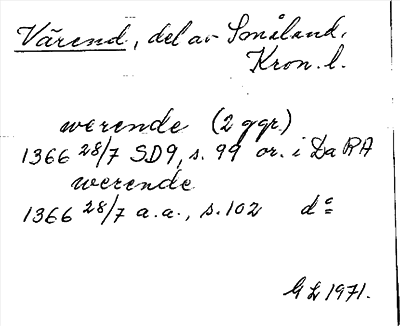 Värend, del av Småland.
Kron. l.
werende (2 ggr.)
1366 28/7 SD9, s. 99 or. i Da RA
werende
1366 28/7 a.a., s. 102 do
G L 1971.